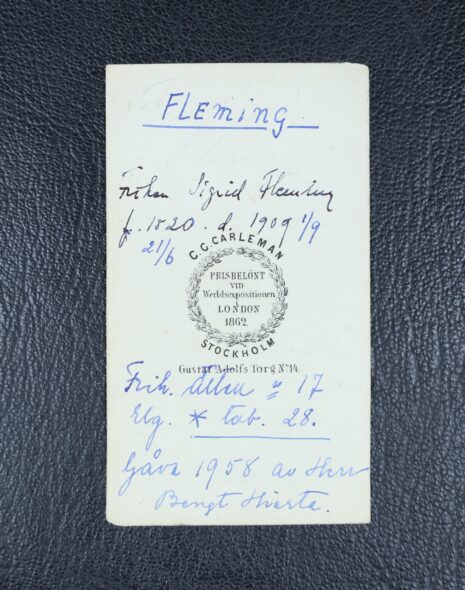 FLEMING
Fröken Sigrid Fleming
f. 1820. d. 1909 1/9
21/6
C.G. CARLEMAN
PRISBELÖNT
VID
Werldsexpositionen
i
LONDON
1862.
STOCKHOLM
Gustaf Adolfs Torg No 14.
Frih. ätten 17
Elg. * tab. 28.
Gåva 1958 av Herr
Bengt Hierta.